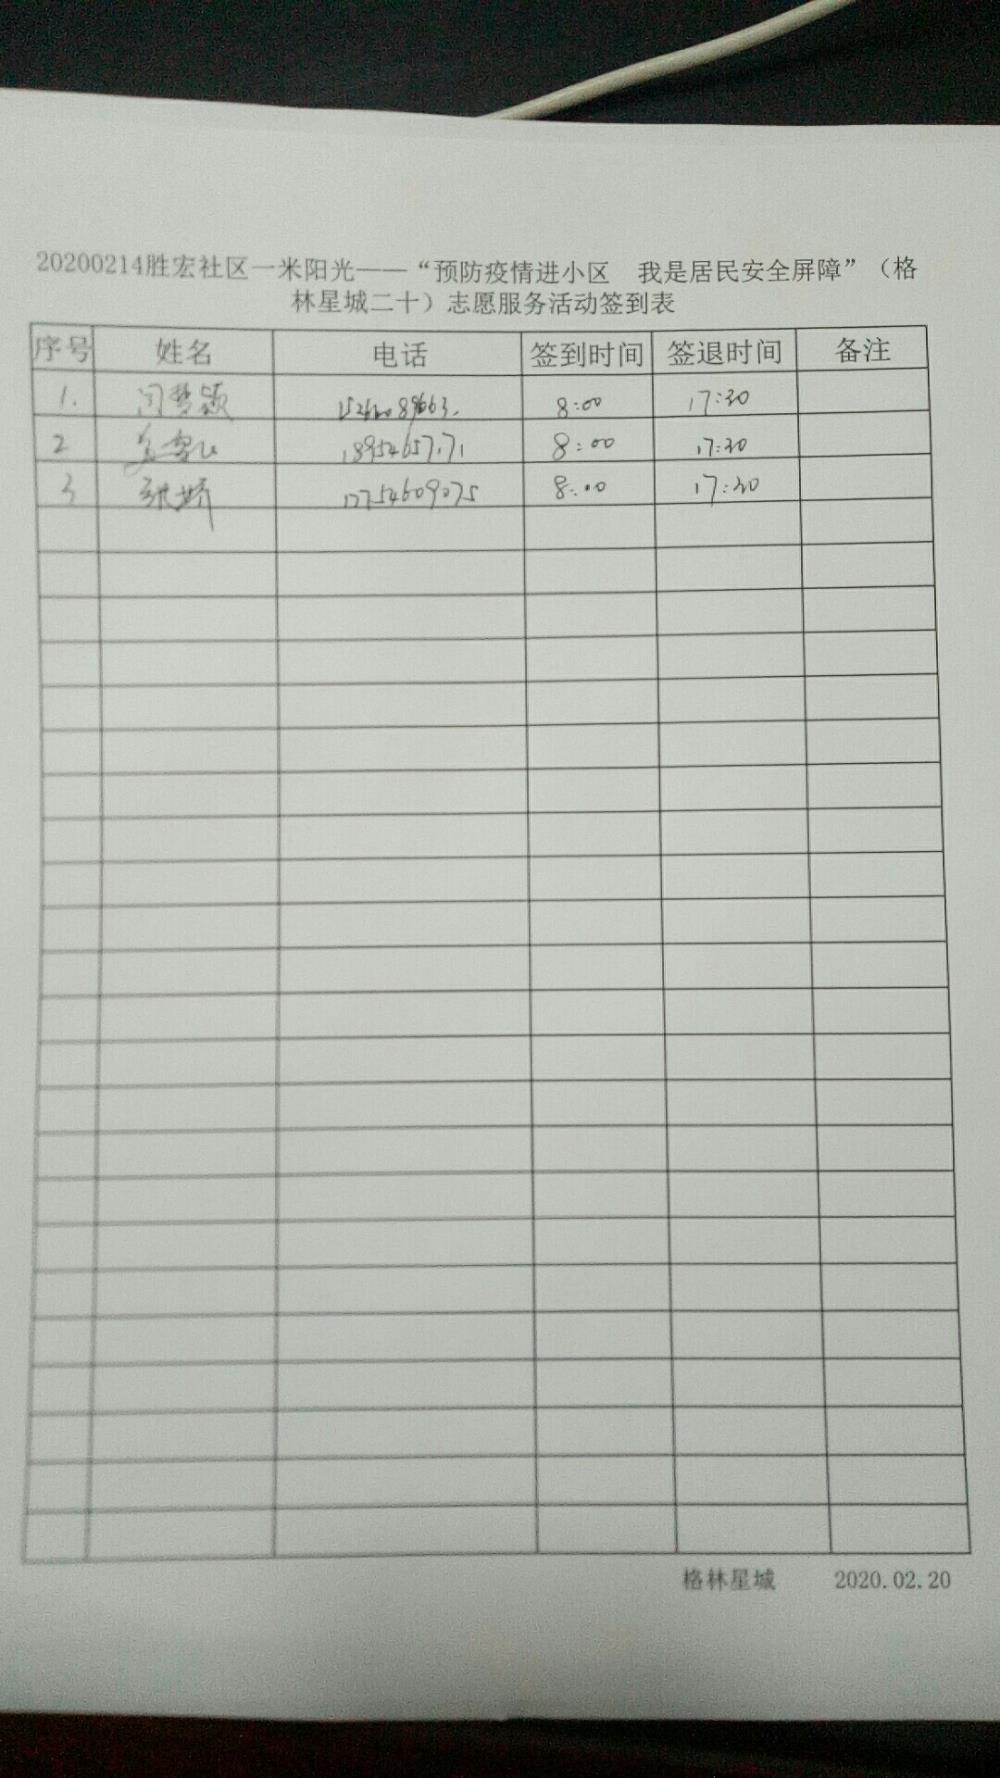 20200214胜宏社区一米阳光——“预防疫情进小区 我是居民安全屏障”（格
林星城二十）志愿服务活动签到表
序号 姓名 电话 签到时间 签退时间 备注
1. 闫梦颖 8:00 17:30
2 8:00 17:30
3 张娇 8:00 17:30
格林星城 2020.02.20